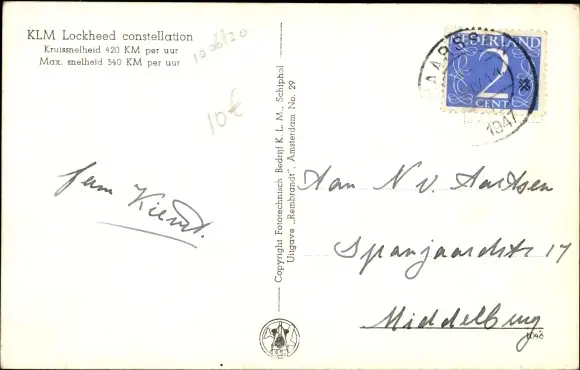 KLM Lockheed constellation
Kruissnelheid 420 KM per uur
Max. snelheid 540 KM per uur
10€
Fam Kiemt.
Copyright Fototechnisch Bedrijf K. L. M., Schiphol
Uitgave „Rembrandt", Amsterdam No. 29
NEDERLAND
2
CENT
1947
Aan N.V. Aartsen
Spanjaardstr 17
Middelburg
1048